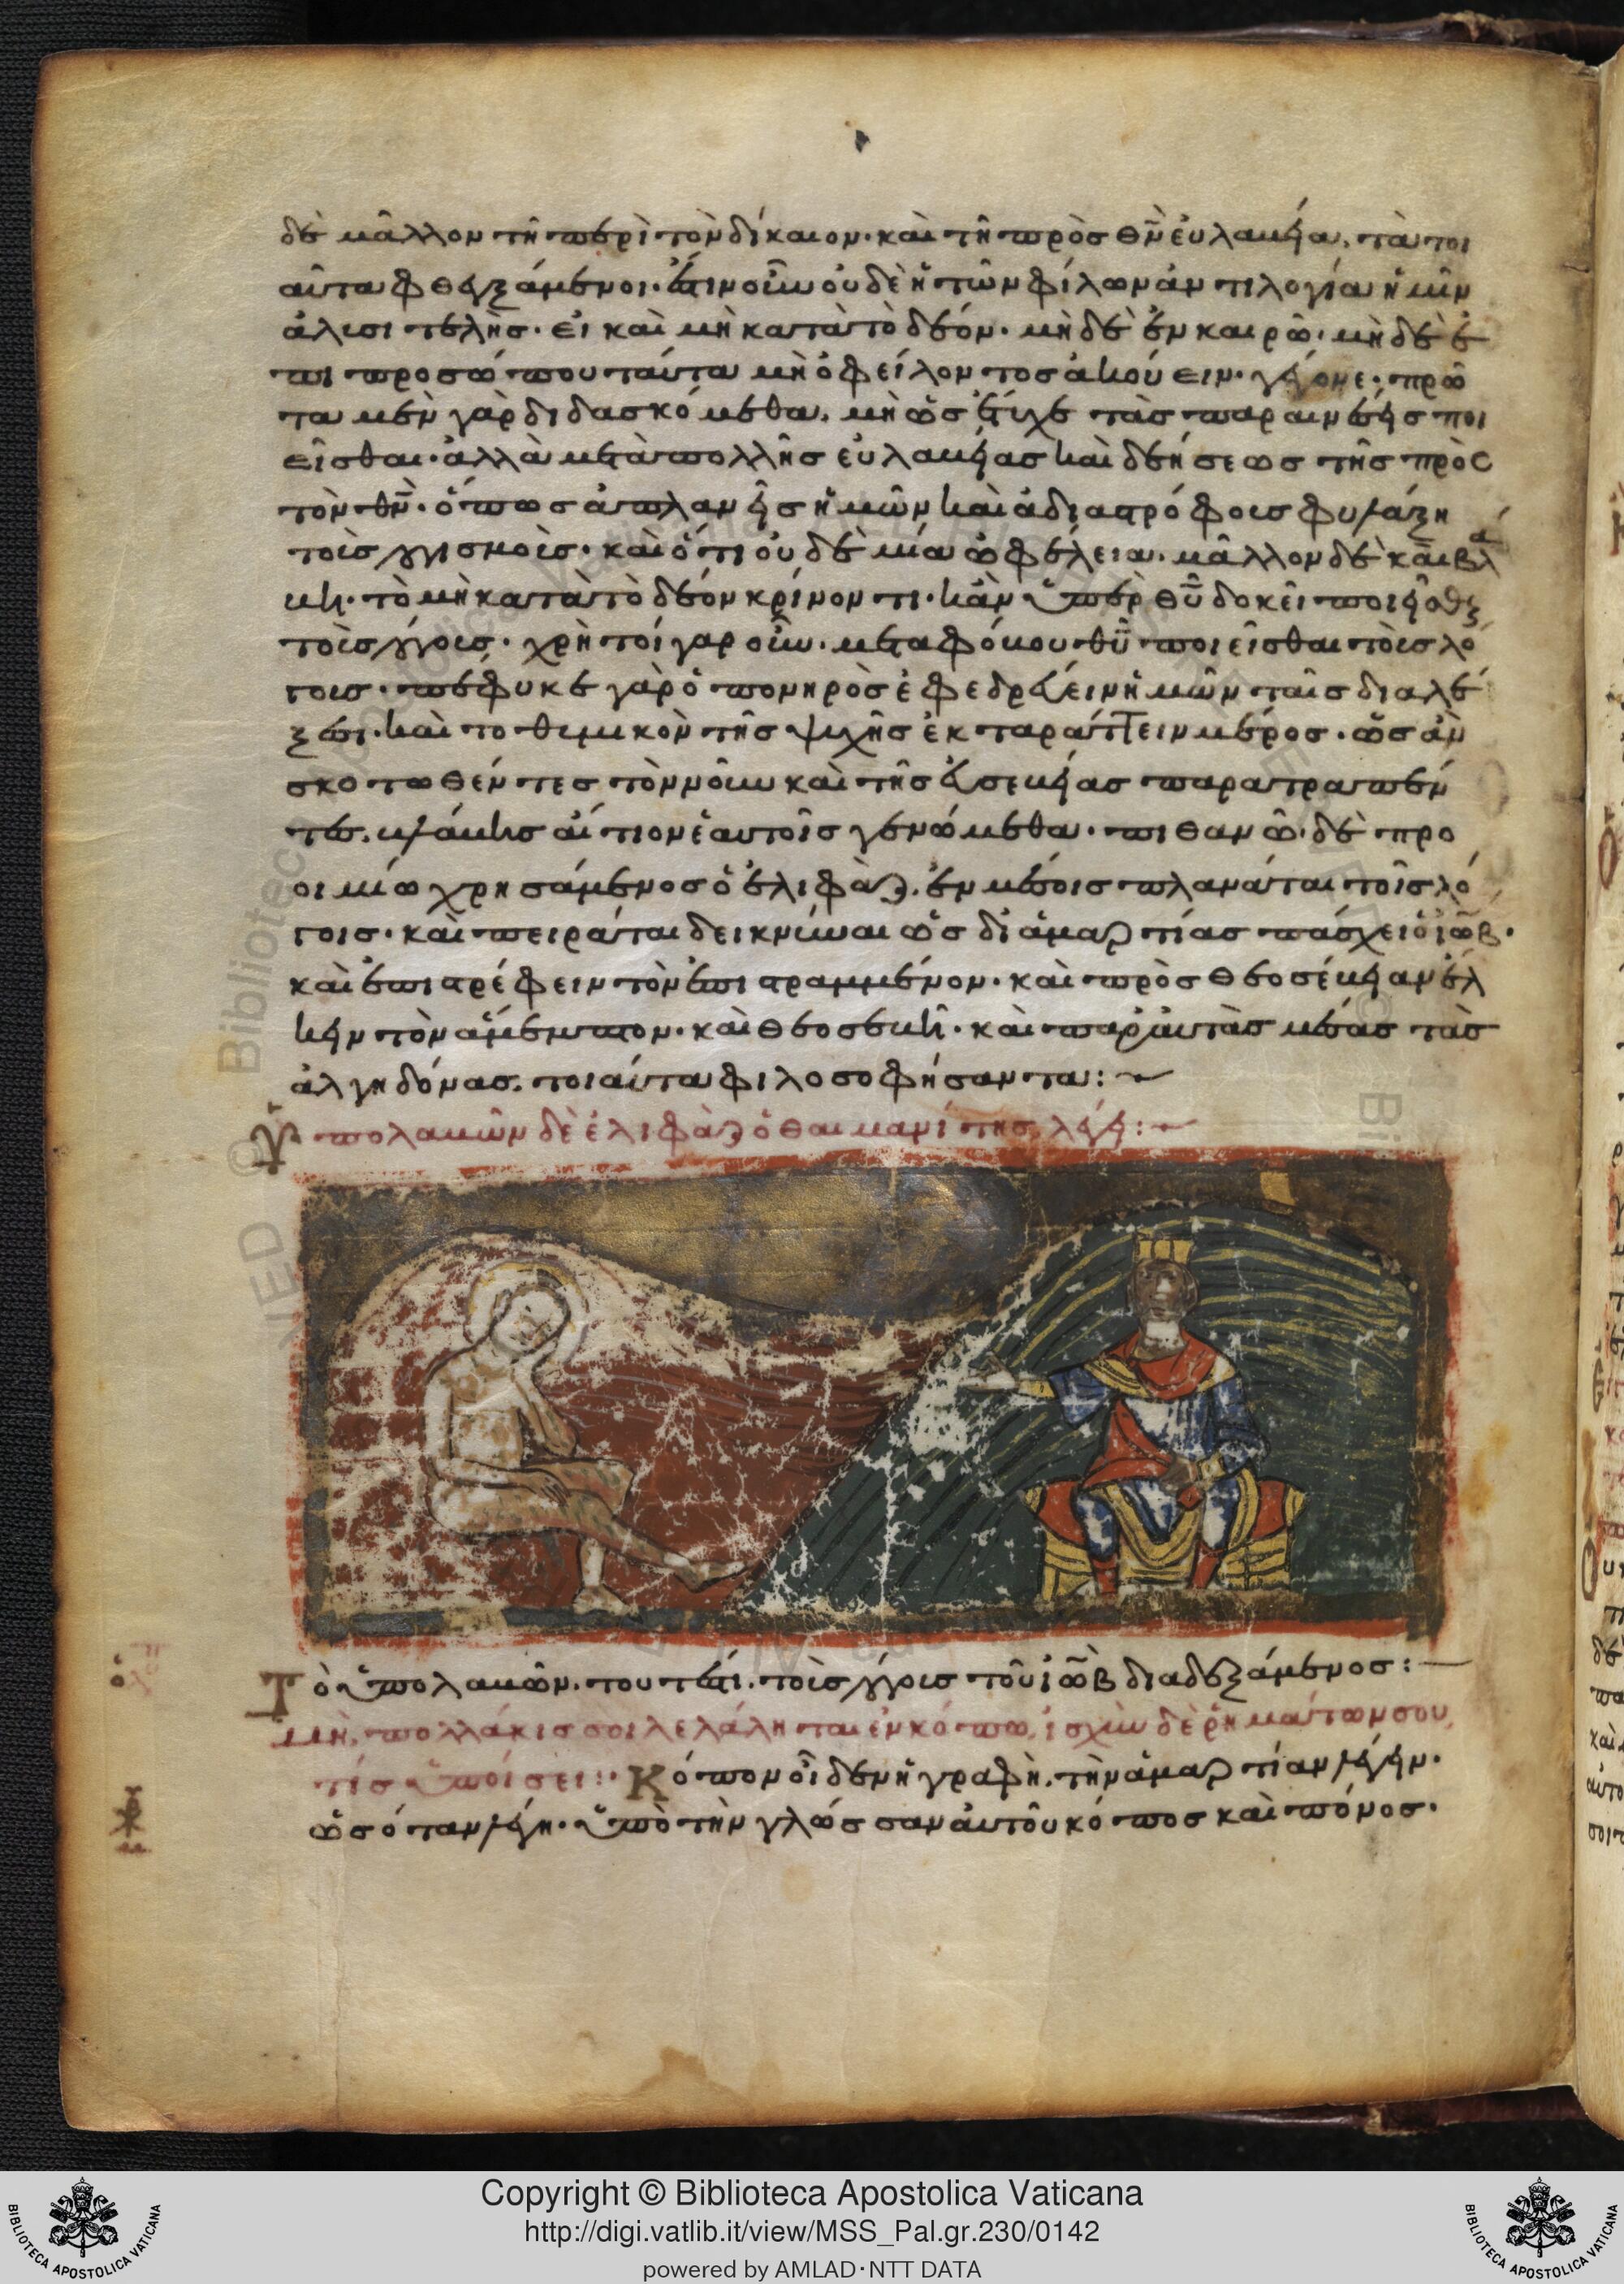 δὲ μᾶλλον τῆ περὶ τὸν δίκαιον· καὶ τῆ πρὸς θν̅ εὐλαβεία, τὰ τοι
αῦτα φθεγξάμενοι· ἔστιν οὖν οὐδὲ ἡ τῶν φίλων ἀντιλογία ἡμῖν
ἀλυσιτελὴς· εἰ καὶ μὴ κατὰ τὸ δέον· μὴ δὲ ἐν καιρῶ· μὴ δὲ ἐ
πι προσώπου ταῦτα μὴ ὀφείλοντος ἀκούειν· γέγονε· πρῶ
τα μὲν γὰρ διδασκόμεθα, μὴ ὡς ἔτυχε τὰς παραινέσεις ποι
εῖσθαι· ἀλλὰ μετὰ πολλῆς εὐλαβείας καὶ δεήσεως τῆς πρὸς
τὸν θν̅· ὅπως ἀπλανεῖς ἡμῶν καὶ ἀδιαστρόφους φυλάξη
τοὺς λογισμοὺς· καὶ ὅτι οὐδὲ μία ὠφέλεια, μᾶλλον δὲ καὶ βλα
βὴ· τὸ μὴ κατὰ τὸ δέον κρίνοντι· κὰν ὑπὲρ θυ̅ δοκεῖ ποιεῖσθαι
τοὺς λόγους· χρὴ τοίγαρ οὖν, μετα φόβου θυ̅ ποιεῖσθαι τοὺς λό
γους· πέφυκε γὰρ ὁ πονηρὸς ἐφεδρεύειν ἡμῶν ταῖς διαλέ
ξεσι· καὶ το θυμικὸν τῆς ψυχῆς ἐκταράττειν μέρος· ὡς ἂν
σκοτωθέντες τὸν νοῦν καὶ τῆς εὐσεβείας παρατραπέν
τες, βλάβης αἴτιον ἑαυτοῖς γενώμεθα· πιθανῶ· δὲ προ
οιμίω χρησάμενος ὁ ἐλιφὰζ, ἐν μέσοις πλανᾶται τοῖς λό
γοις· καὶ πειρᾶται δεικνύναι ὡς δι ἁμαρτίας πάσχει ὁ ἰὼβ·
καὶ ἐπιστρέφειν τὸν ἐπιστραμμένον· καὶ πρὸς θεοσέβειαν ἕλ
κειν τὸν ἄμεμπτον· καὶ θεοσεβῆ· καὶ παρ αὐτὰς μέσας τὰς
ἀλγηδόνας, τοιαῦτα φιλοσοφήσαντα:
Ὑπολαβὼν δὲ ἐλιφὰζ ὁ θαιμανίτης λέγει:
Τὸ ὑπολαβὼν, τουτέστι, τοὺς λόγους τοῦ ἰὼβ διαδεξάμενος:
μὴ, πολλάκις σοι λελάληται ἐν κόπω, ἰσχὺν δὲ ῥημάτων σου,
τίς ὑποίσει: Κόπον οἶδεν ἡ γραφὴ, τὴν ἁμαρτίαν λέγειν·
ὡς ὅταν λέγη· ὑπὸ τὴν γλῶσσαν αὐτοῦ κόπος καὶ πόνος·
Copyright © Biblioteca Apostolica Vaticana
http://digi.vatlib.it/view/MSS_Pal.gr.230/0142
powered by AMLAD·NTT DATA
BIBLIOTECA APOSTOLICA VATICANA
BIBLIOTECA APOSTOLICA VATICANA